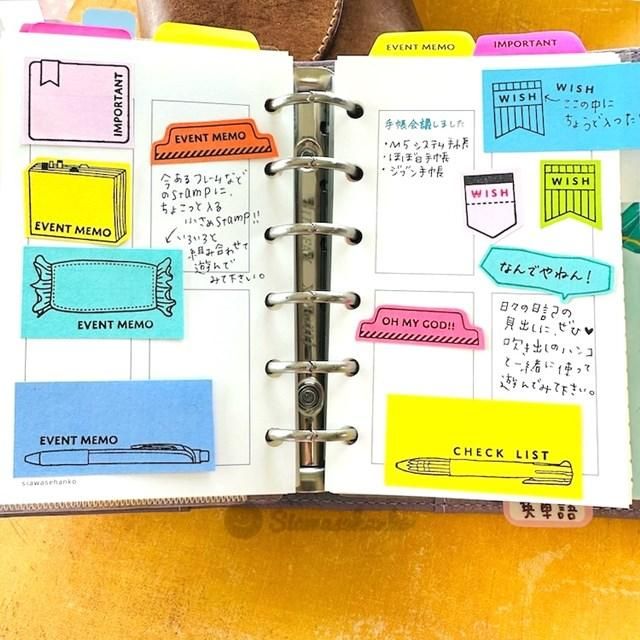 IMPORTANT
EVENT MEMO
今あるフレームなど
のstampに、
ちょこっと入る
小さめstamp!!
いろいろと
組み合わせて
遊んで
みて下さい。
EVENT MEMO
EVENT MEMO
EVENT MEMO
siawasehanko
EVENT MEMO
IMPORTANT
手帳会議しました
・M5システム手帳
・ほぼ日手帳
・ジブン手帳
WISH
WISH
ここの中に
ちょうど入った
WISH
WISH
なんでやねん!
OH MY GOD!!
日々の日記の
見出しに、ぜひ♥
吹き出しのハンコ
と一緒に使って
遊んでみて下さい。
CHECK LIST
英単語
Siawasehanko